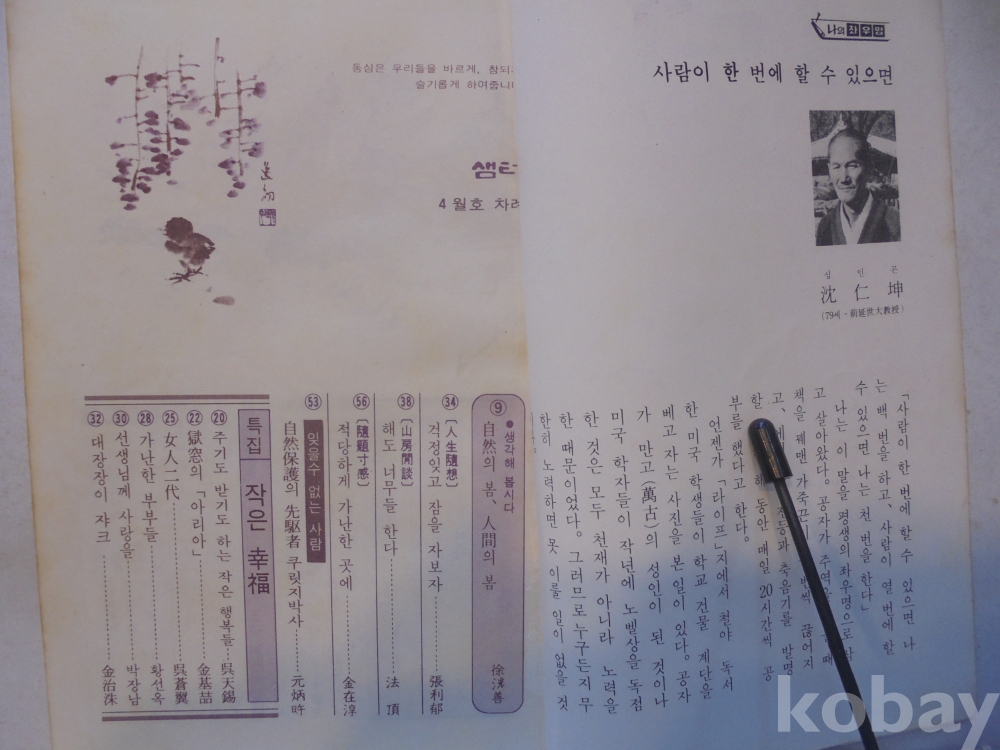 동심은 우리들을 바르게, 참되
슬기롭게 하여줍니
샘터
4월호 차례
⑨
●생각해 봅시다
自然의 봄、人間의 봄
徐洸善
㉞
〔人生隨想〕
걱정잊고 잠을 자보자
張利郁
㊳
〔山房閒談〕
해도 너무들 한다
法頂
〔隨題寸感〕
적당하게 가난한 곳에
金在淳
잊을수 없는 사람
自然保護의 先駆者 쿠릿지박사
元炳旿
특집 작은 幸福
⑳ 주기도 받기도 하는 작은 행복들 吳天錫
㉒ 獄窓의「아리아」 金基喆
㉕ 女人二代 吳蒼翼
㉘ 가난한 부부들 황선옥
㉚ 선생님께 사랑을 박장남
㉜ 대장장이 쟈크 金治洙
나의 좌우명
사람이 한 번에 할 수 있으면
심인곤
沈仁坤
(79세·前延世大教授)
「사람이 한 번에 할 수 있으면 나
는 백 번을 하고、사람이 열 번에 할
수 있으면 나는 천 번을 한다」
나는 이 말을 평생의 좌우명으로
고 살아왔다。공자가 주역을 때
책을 꿰맨 가죽끈이 번씩 끊어지
고、 전등과 축음기를 발명
할 해 동안 매일 20시간씩 공
부를 했다고 한다。
언젠가「라이프」지에서 철야 독서
한 미국 학생들이 학교 건물 계단을
베고 자는 사진을 본 일이 있다。공자
가 만고(萬古)의 성인이 된 것이나
미국 학자들이 작년에 노벨상을 독점
한 것은 모두 천재가 아니라 노력을
한 때문이었다。그러므로 누구든지 무
한히 노력하면 못 이룰 일이 없을 것
kobay